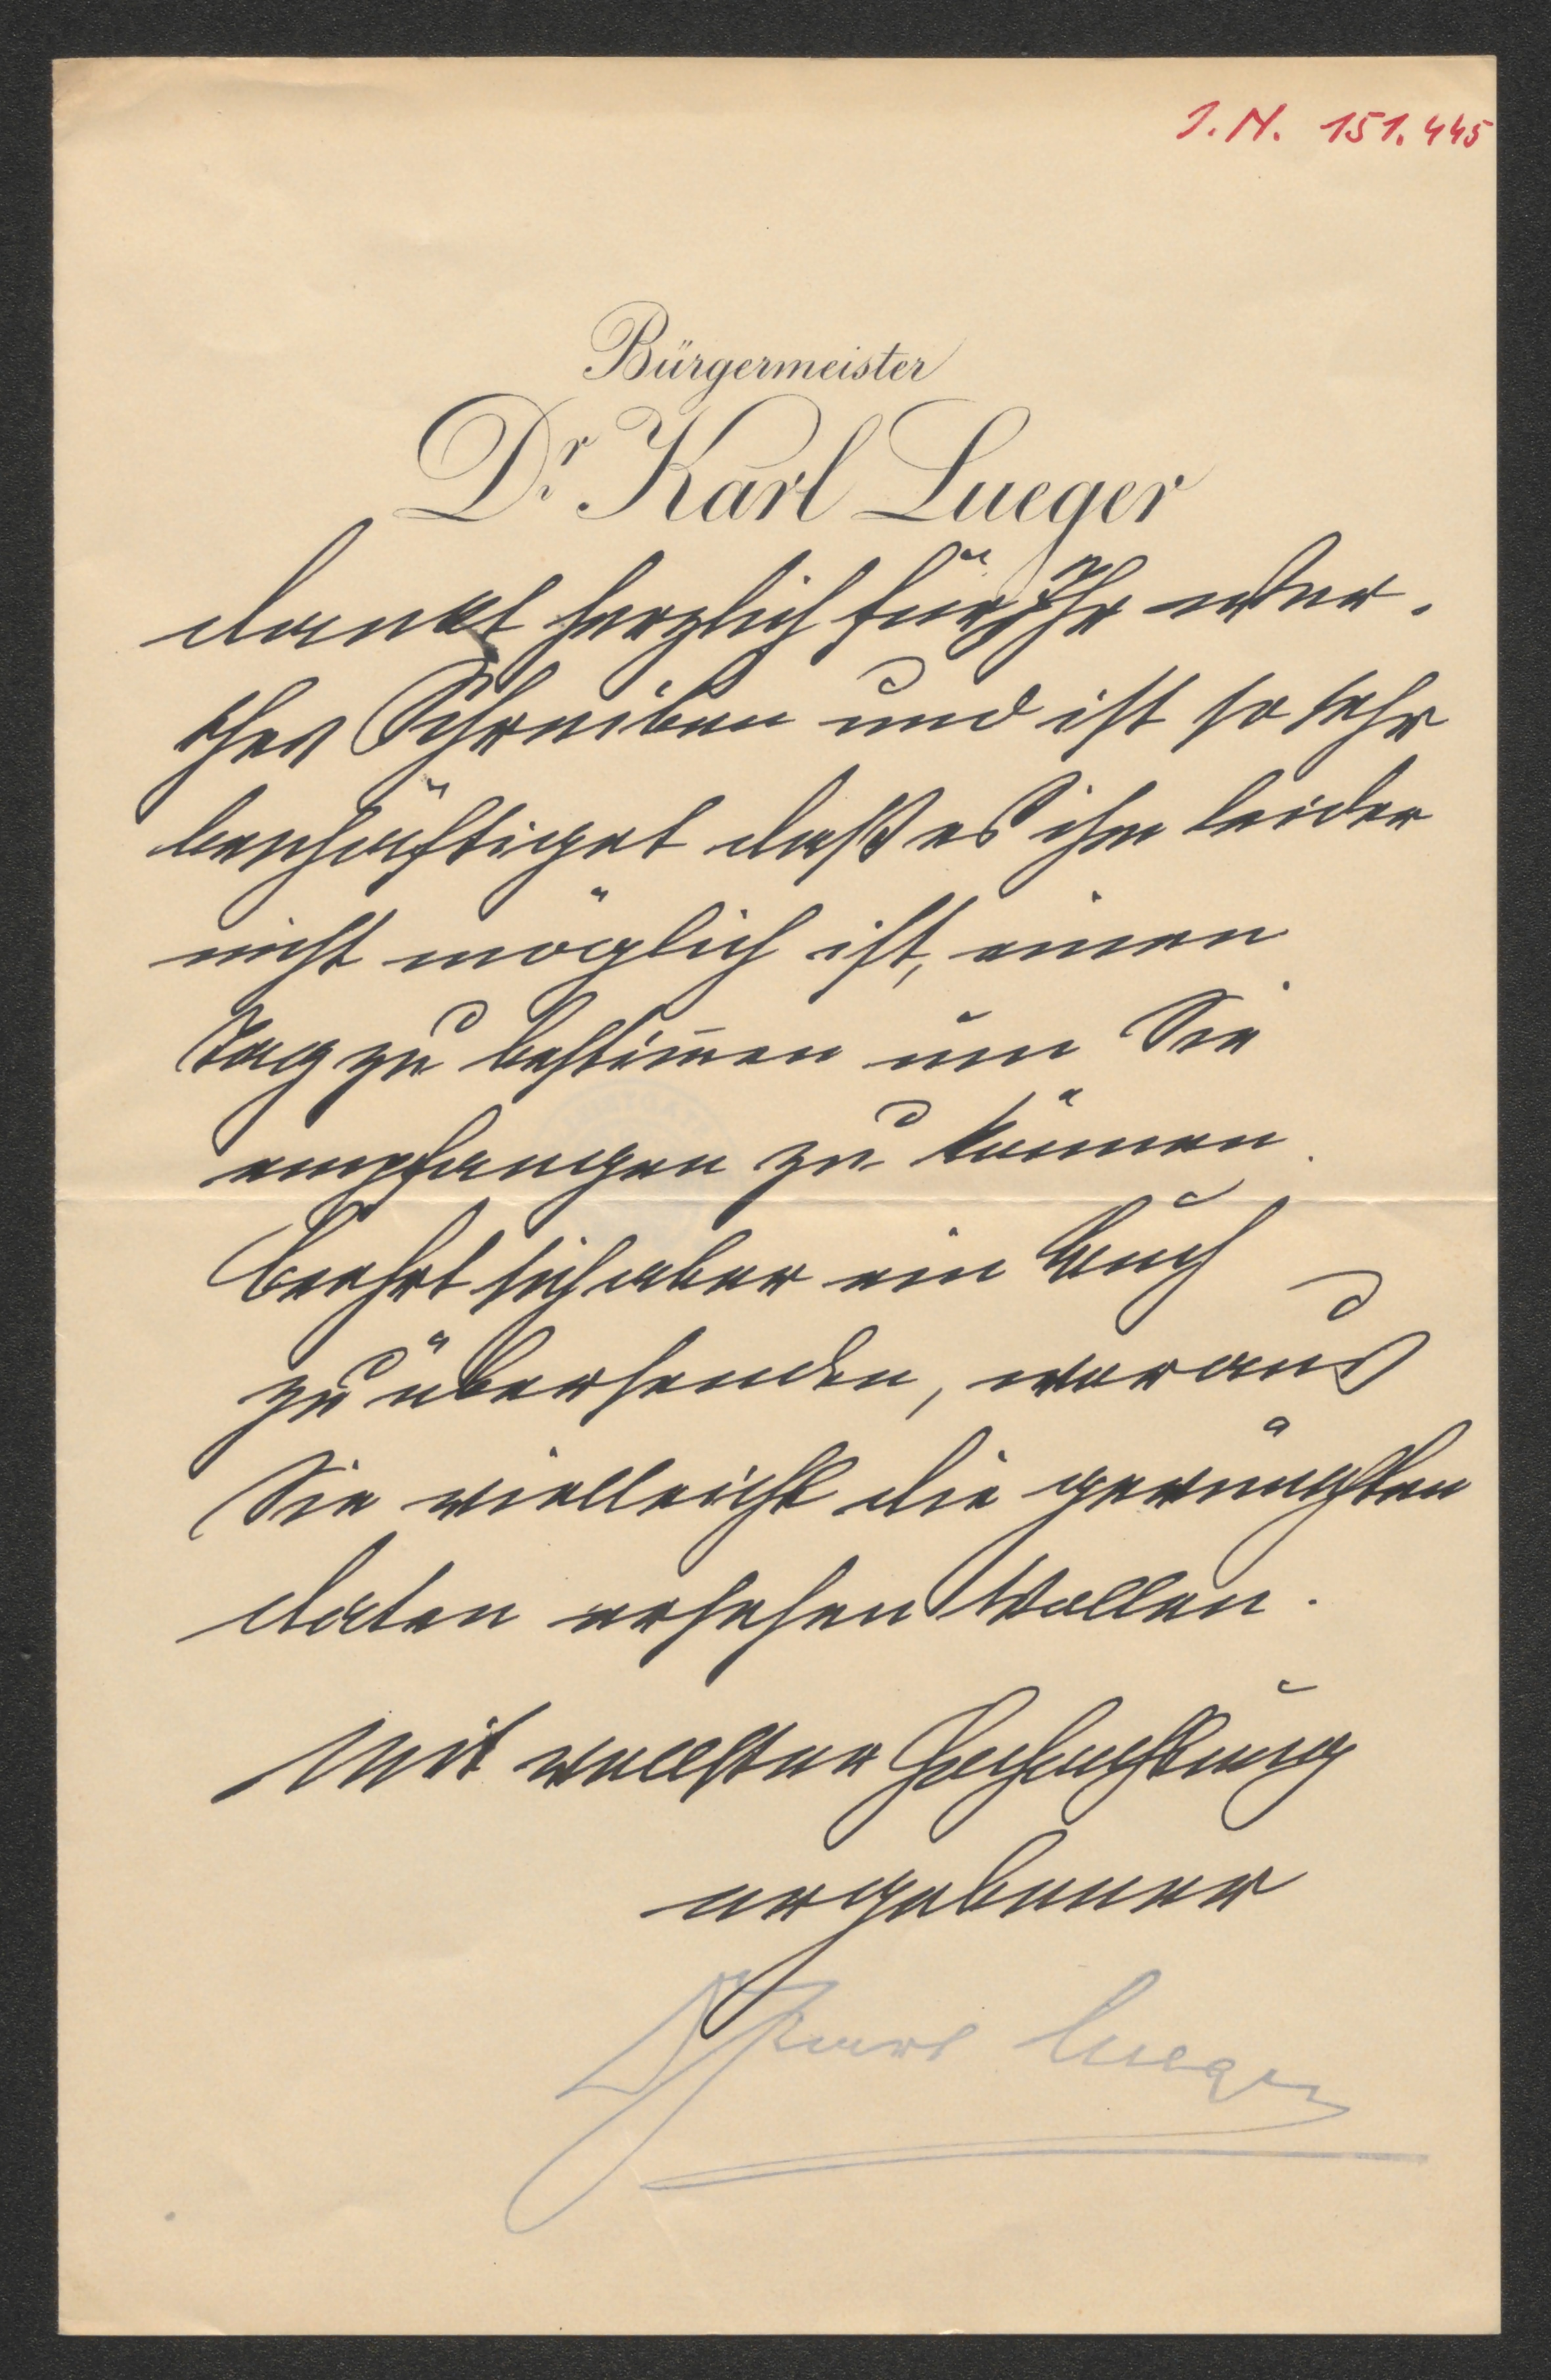 I.N. 151.445
Bürgermeister
Dr. Karl Lueger
dankt herzlich für Ihr wer-
thes Schreiben und ist so sehr
beschäftiget daß es ihm leider
nicht möglich ist, einen
Tag zu bestim̄en um Sie
empfangen zu können.
beehrt sich aber ein Buch
zu übersenden, woraus
Sie vielleicht die gewünschten
daten ersehen Wollen.
Mit vollster Hochachtung
ergebener
Dr Karl Lueger